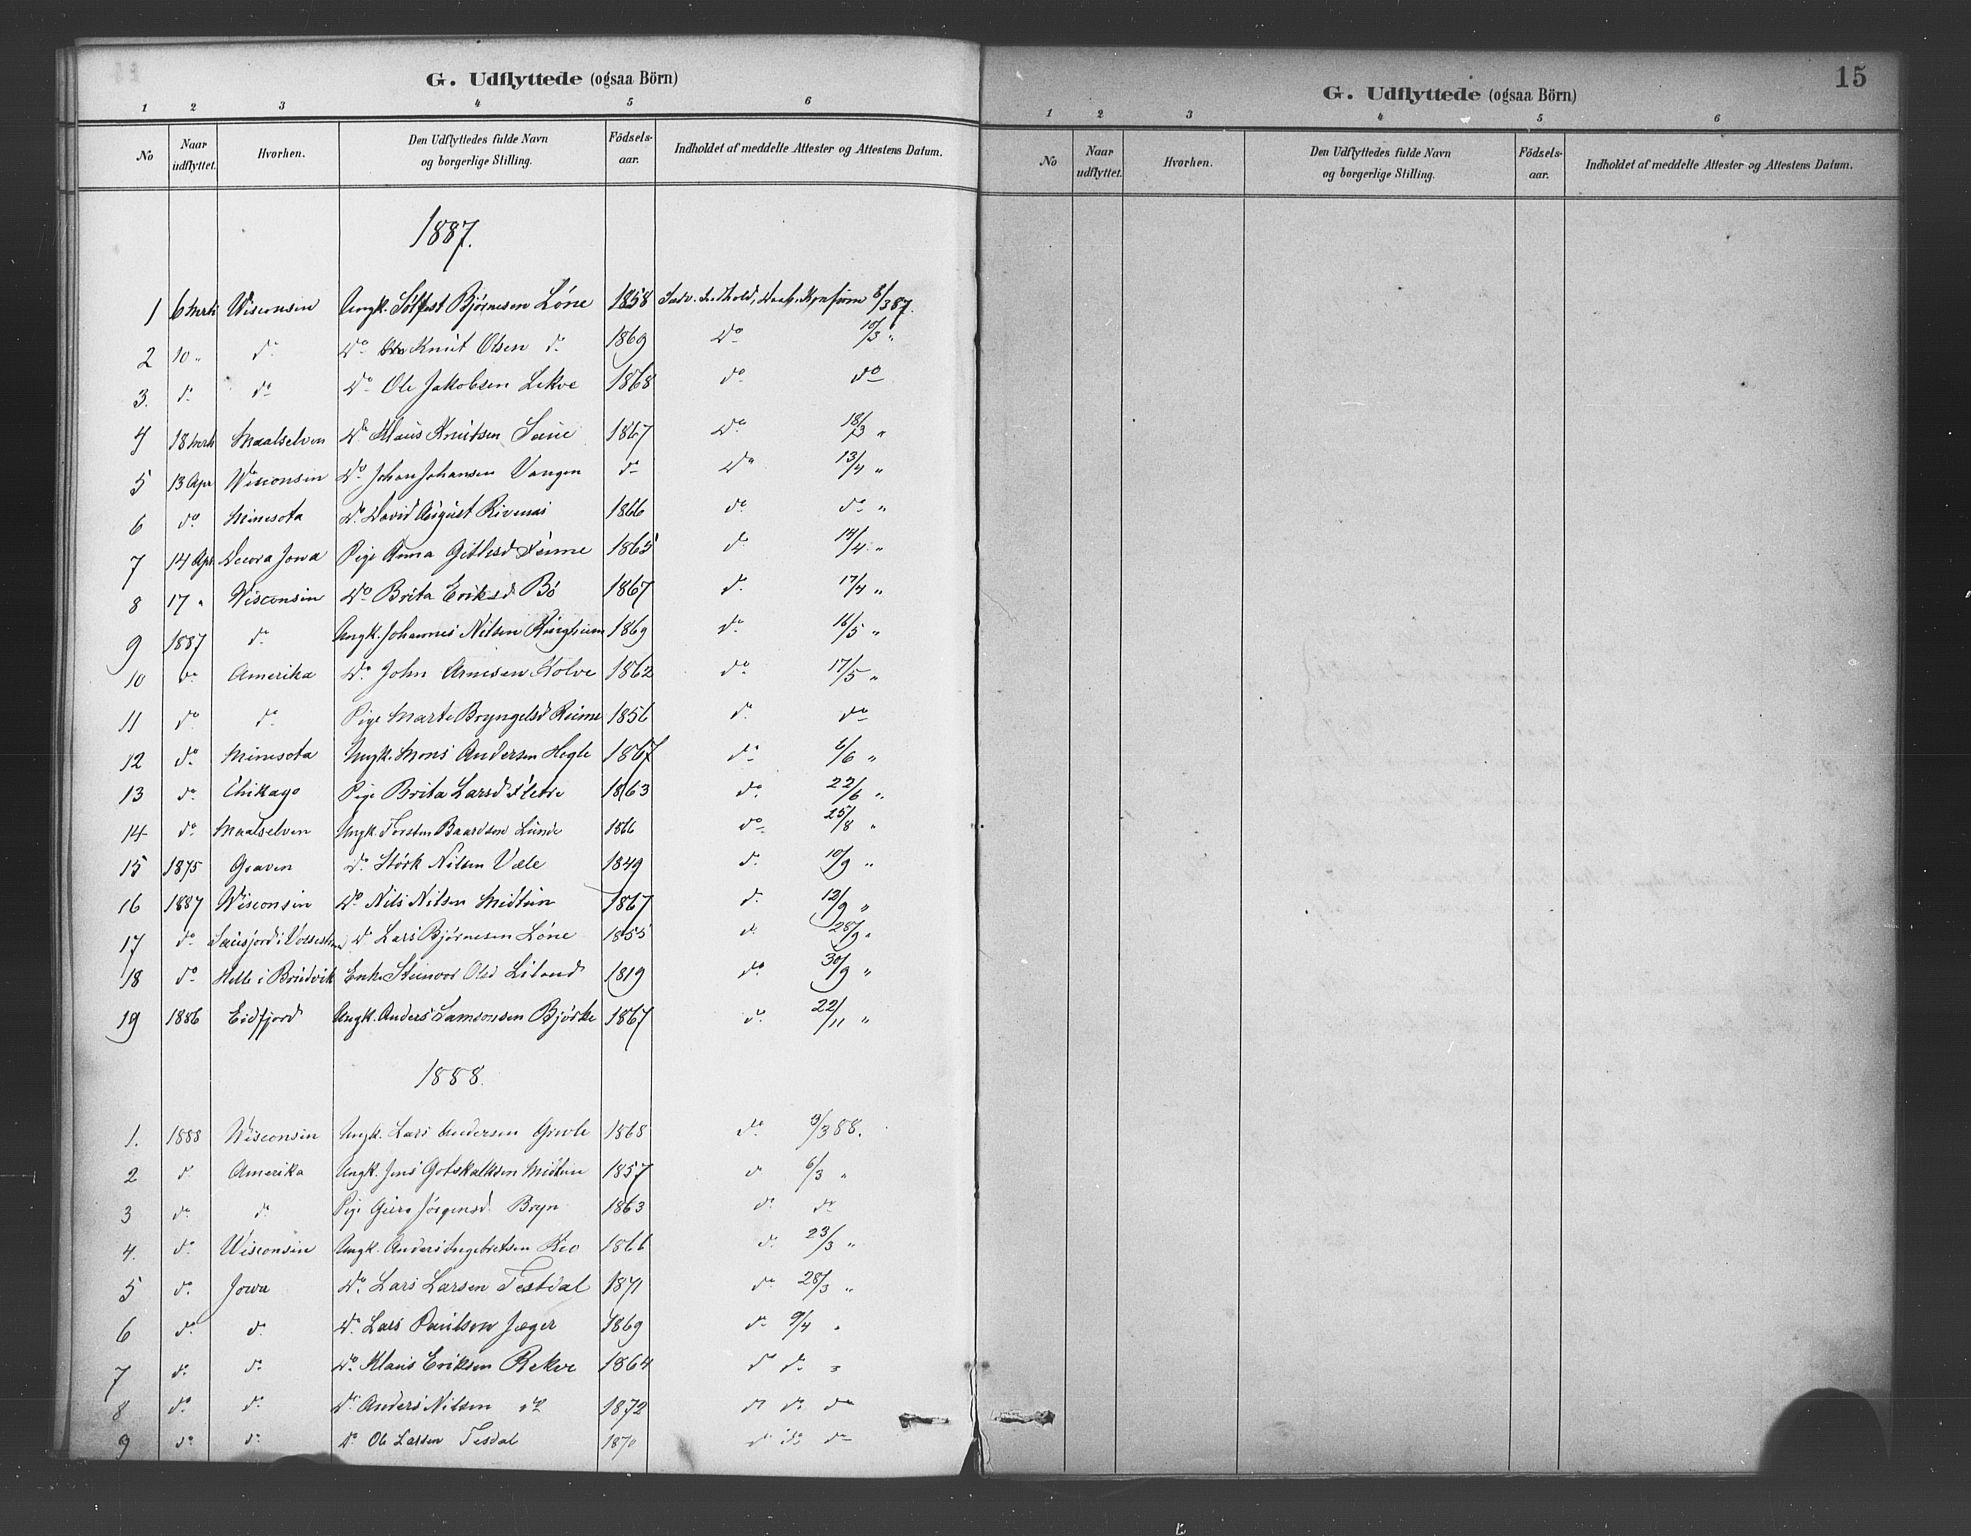 G. Udflyttede (ogsaa Börn)
1 2 3 4 5 6
No Naar udflyttet. Hvorhen. Den Udflyttedes fulde Navn og borgerlige Stilling. Födsels-aar. Indholdet af meddelte Attester og Attestens Datum.
1887.
1 6 Mrts Wisconsin Ungk. Sölfest Bjørnesen Löne 1858 Indv. Indhold, Daab, Konfirm 6/3 87.
2 10 " do Do Knut Olsen do 1869 Do 10/3 "
3. do do Do Ole Jakobsen Lekve 1868 do do
4 18 Mrts Maalselven Do Klaus Knutsen 1867 Do 18/3 "
5 13 Apr Wisconsin Do Johan Johansen Vangen do Do 13/4 "
6 do Minesota Do David August Rivenæs 1866 do do "
7 14 Apr Decora Jowa Pige Anna Gitlesd 1865 do 14/4 "
8 17 " Wisconsin Do Brita Eriksd Bö 1867 do 17/4 "
9 1887 do Ungk. Johannes Nilsen Ringheim 1869 do 16/5 "
10 do Amerika Do John Arnesen Kolve 1862 do 17/5 "
11 do do Pige Marte Bryngelsd Reime 1856 do do
12 do Minesota Ungk. Mons Andersen Hegle 1867 do 6/6 "
13 do Chikago Pige Brita Larsd Fletre 1863 do 22/6 "
14 do Maalselven Ungk. Torsten Baardsen Lunde 1866 do 25/8 "
15 1875 Graven Do Störk Nilsen Væle 1849 do 10/9 "
16 1887 Wisconsin Do Nils Nilsen Midtun 1867 do 12/9 "
17 do Do Lars Bjørnesen Löne 1855 do 28/9 "
18 do Helle i Bruvik Enke Steinvor Olsd Liland 1819 do 30/9 "
19 1886 Eidfjord Ungk. Anders Samsonsen Bjørke 1867 do 22/11 "
1888.
1. 1888 Wisconsin Ungk. Lars Andersen Gjerle 1868 do 3/3 88.
2 do Amerika Ungk. Jens Gotskalksen Midtun 1857 do 6/3 "
3 do do Pige Jörgensd. Bryn 1863 do do
4. do Wisconsin Ungk. Anders Ingebretsen Reo 1866 do 23/3 "
5 do Jowa Do Lars Larsen Tesdal 1871 do 28/3 "
6 do do Do Lars Paulson Jæger 1869 do 9/4 "
7 do do Do Klaus Eriksen Rekve 1864 do do "
8 do do Do Anders Nilsen do 1872 do do do
9 do do Do Ole Larsen Tesdal 1870 do do do
15
G. Udflyttede (ogsaa Börn)
1 2 3 4 5 6
No Naar udflyttet. Hvorhen. Den Udflyttedes fulde Navn og borgerlige Stilling. Födsels-aar. Indholdet af meddelte Attester og Attestens Datum.